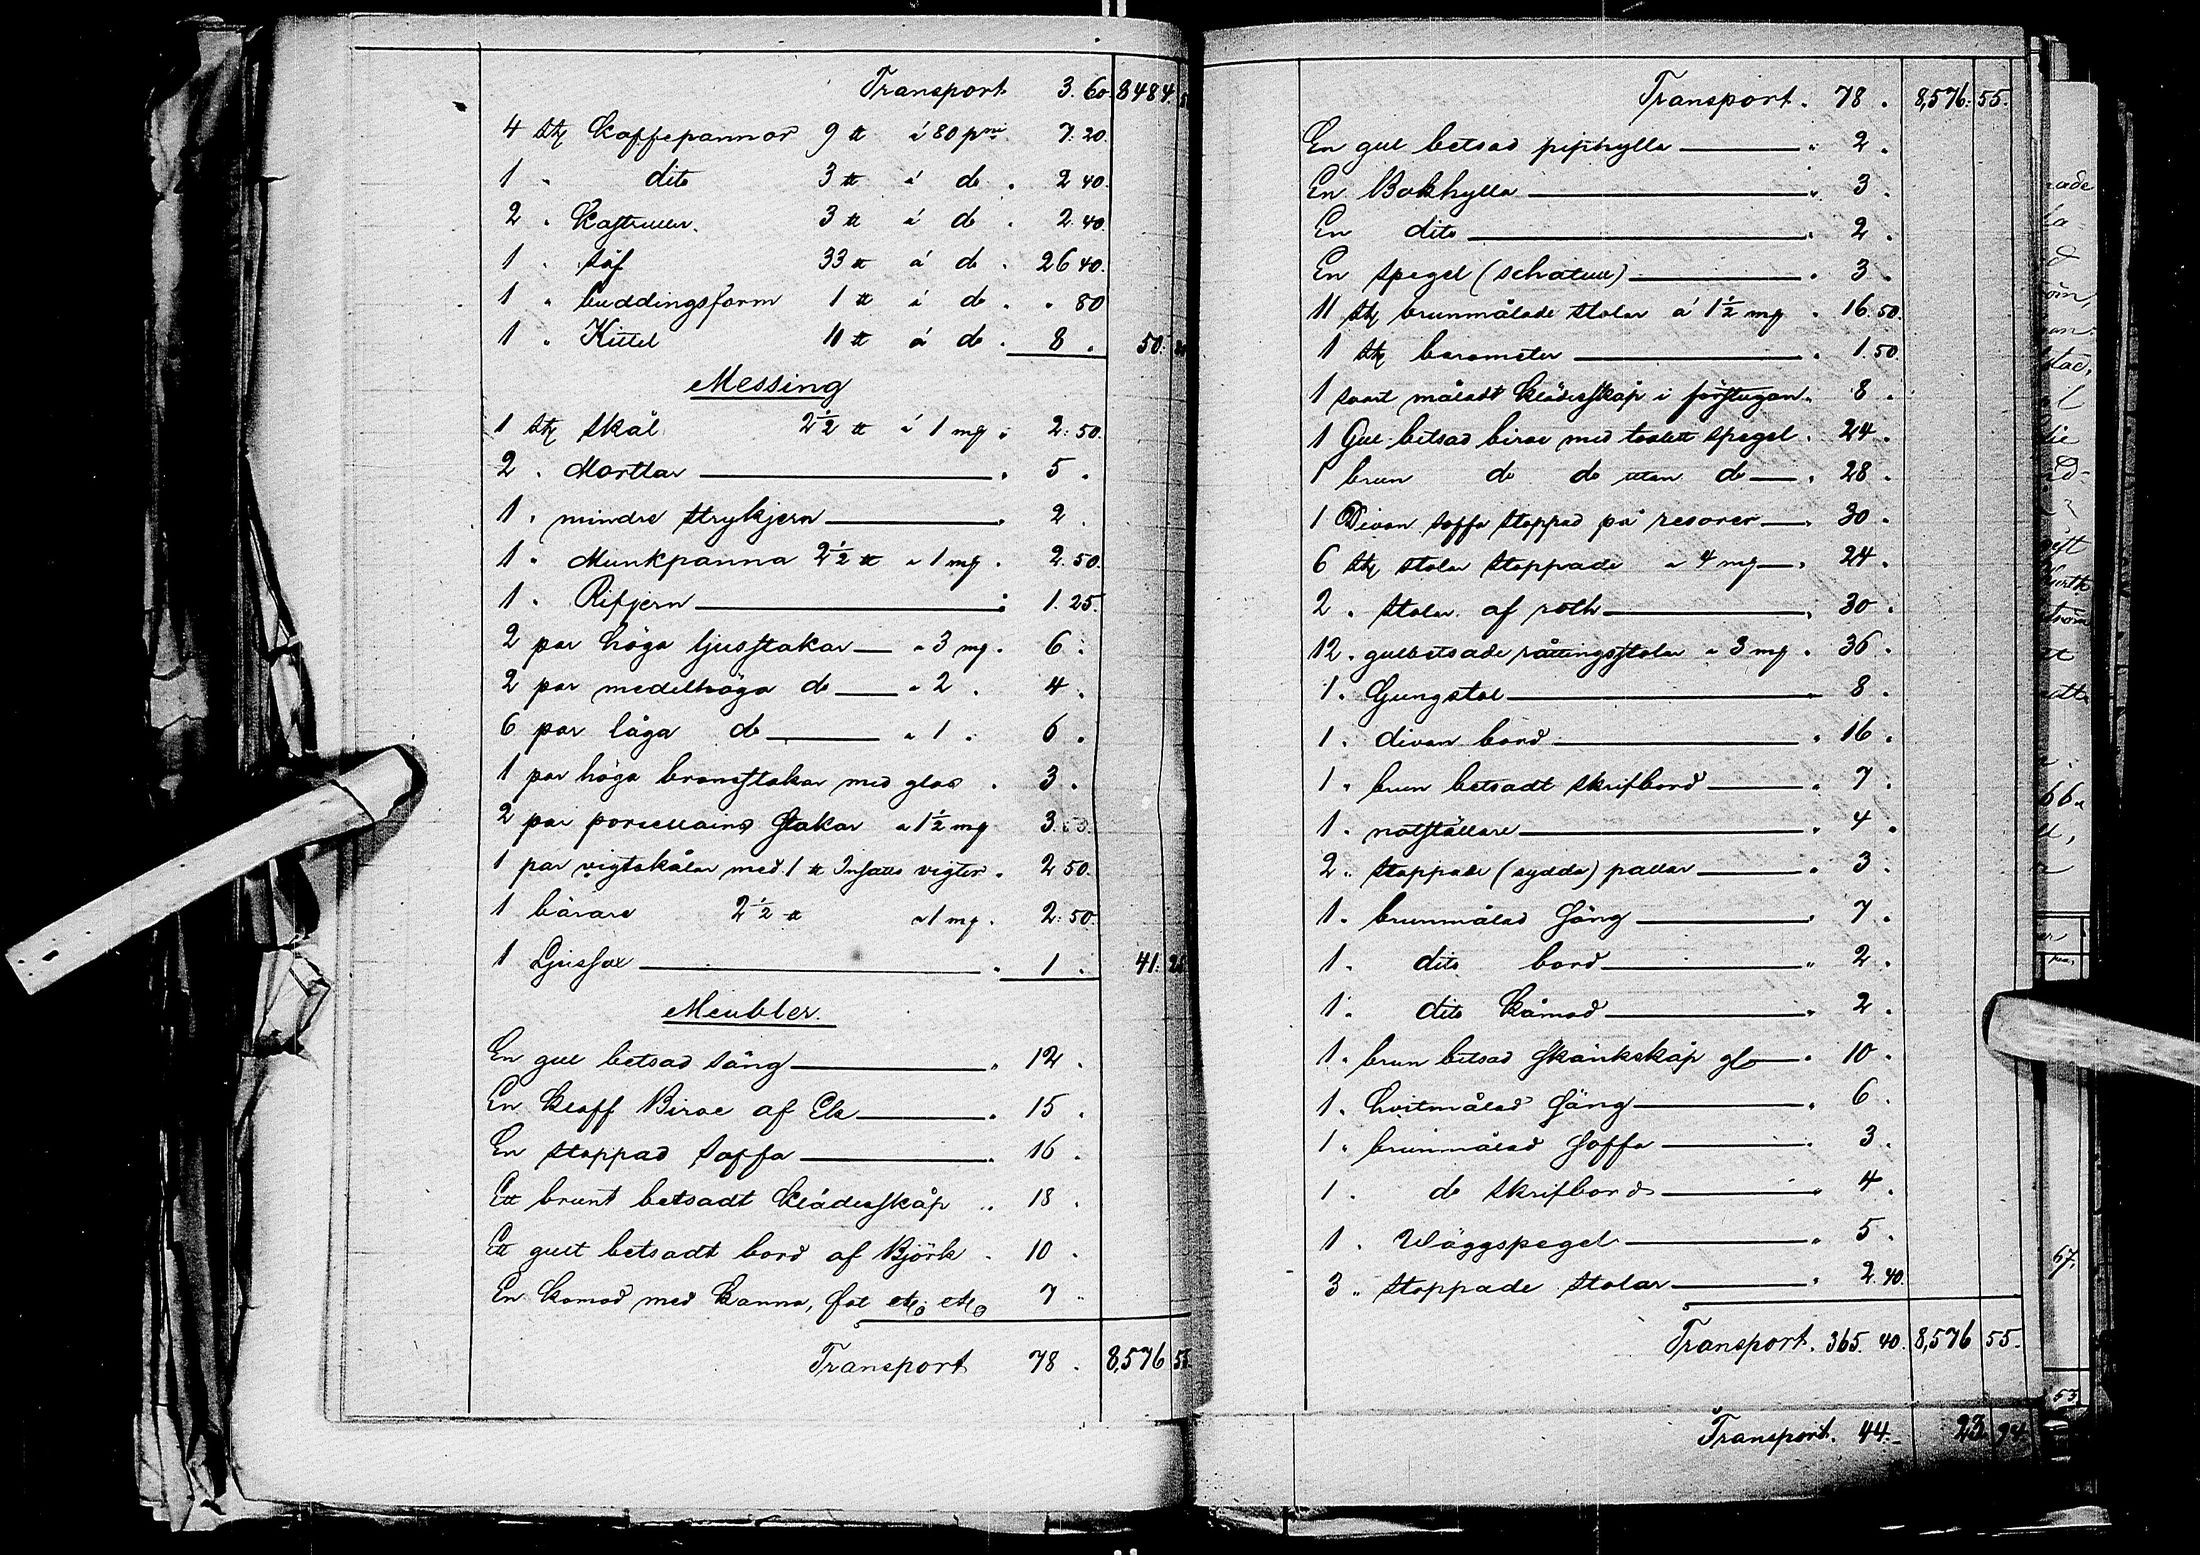 Transport 3.60. 8484.
4 stk Kaffepannor 9 tt á 80 pni 7.20.
1 " dito 3 tt á do " 2 40.
2 " Kastruller 3 tt á do " 2.40.
1 " såf 33 tt á do " 26 40.
1 " buddingsform 1 tt á do " " 80
1 " Kittel 10 tt á do " 8 " 50.
Messing
1 stk skål 2½ tt á 1 mg " 2.50.
2 " Mortlar " 5 "
1 " mindre strykjern " 2 "
1 " Munkpanna 2½ tt a 1 mg " 2.50.
1 " Rifjern " 1.25.
2 par höga ljusstakar a 3 mg. 6 "
2 par medelhöga do a 2 " 4 "
6 par låga do a 1 " 6 "
1 par höga bronsstakar med glas " 3 "
2 par porcellains stakar a 1½ mg 3.
1 par vigtskålar med 1 tt Insatts vigter " 2 50.
1 bärare 2½ tt a 1 mg. 2.50.
1 Ljussax " 1 " 41.
Meubler
En gul betsad säng " 12 "
En Klaff Biroe af Ek " 15 "
En stoppad soffa " 16 "
Ett brunt betsadt klädesskåp " 18 "
Ett gult betsadt bord af Björk " 10 "
En komod med kanna, fat etc. etc. 7 "
Transport 78 " 8,576 55
Transport. 78 " 8,576. 55.
En gul betsad piphylla " 2 "
En Bokhylla " 3 "
En dito " 2 "
En spegel (schatull) " 3 "
11 stk brunmålade stolar á 1½ mg " 16.50.
1 stk barometer " 1.50.
1 svart måladt klädesskåp i förstugan " 8 "
1 Gul betsad biroe med toalett spegel " 24 "
1 brun do do utan do " 28 "
1 Divan soffa stoppad på resorer " 30 "
6 stk stolar stoppade a 4 mg " 24 "
2 " stolar af roth " 30 "
12 " gulbetsade råttingsstolar a 3 mg " 36 "
1 " Gungstol " 8 "
1 " divan bord " 16 "
1 " brun betsadt skrifbord " 7 "
1 " notställare " 4 "
2 " stoppade (sydda) pallar " 3 "
1 " brunmålad säng " 7 "
1 " dito bord " 2 "
1 " dito kåmod " 2 "
1 " brun betsad skänkskåp " 10 "
1 " hvitmålad säng " 6 "
1 " brunmålad soffa " 3 "
1 " do skrifbord " 4 "
1 " Wäggspegel " 5 "
3 " stoppade stolar " 2.40.
Transport. 365 40. 8,576 55.
Transport. 44. 23 94